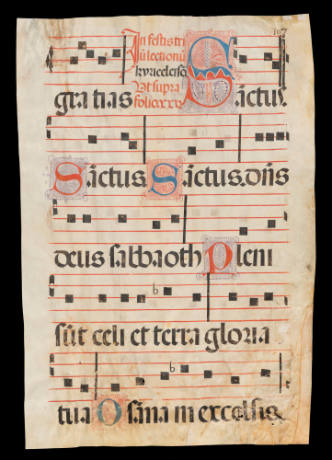 In festis tri
kyrieeleiso
Ut supra
folio xxx
gratias Sanctus.
Sanctus. Sanctus. dñs
deus sabbaoth Pleni
sūt celi et terra gloria
tua Osana in excelsis.